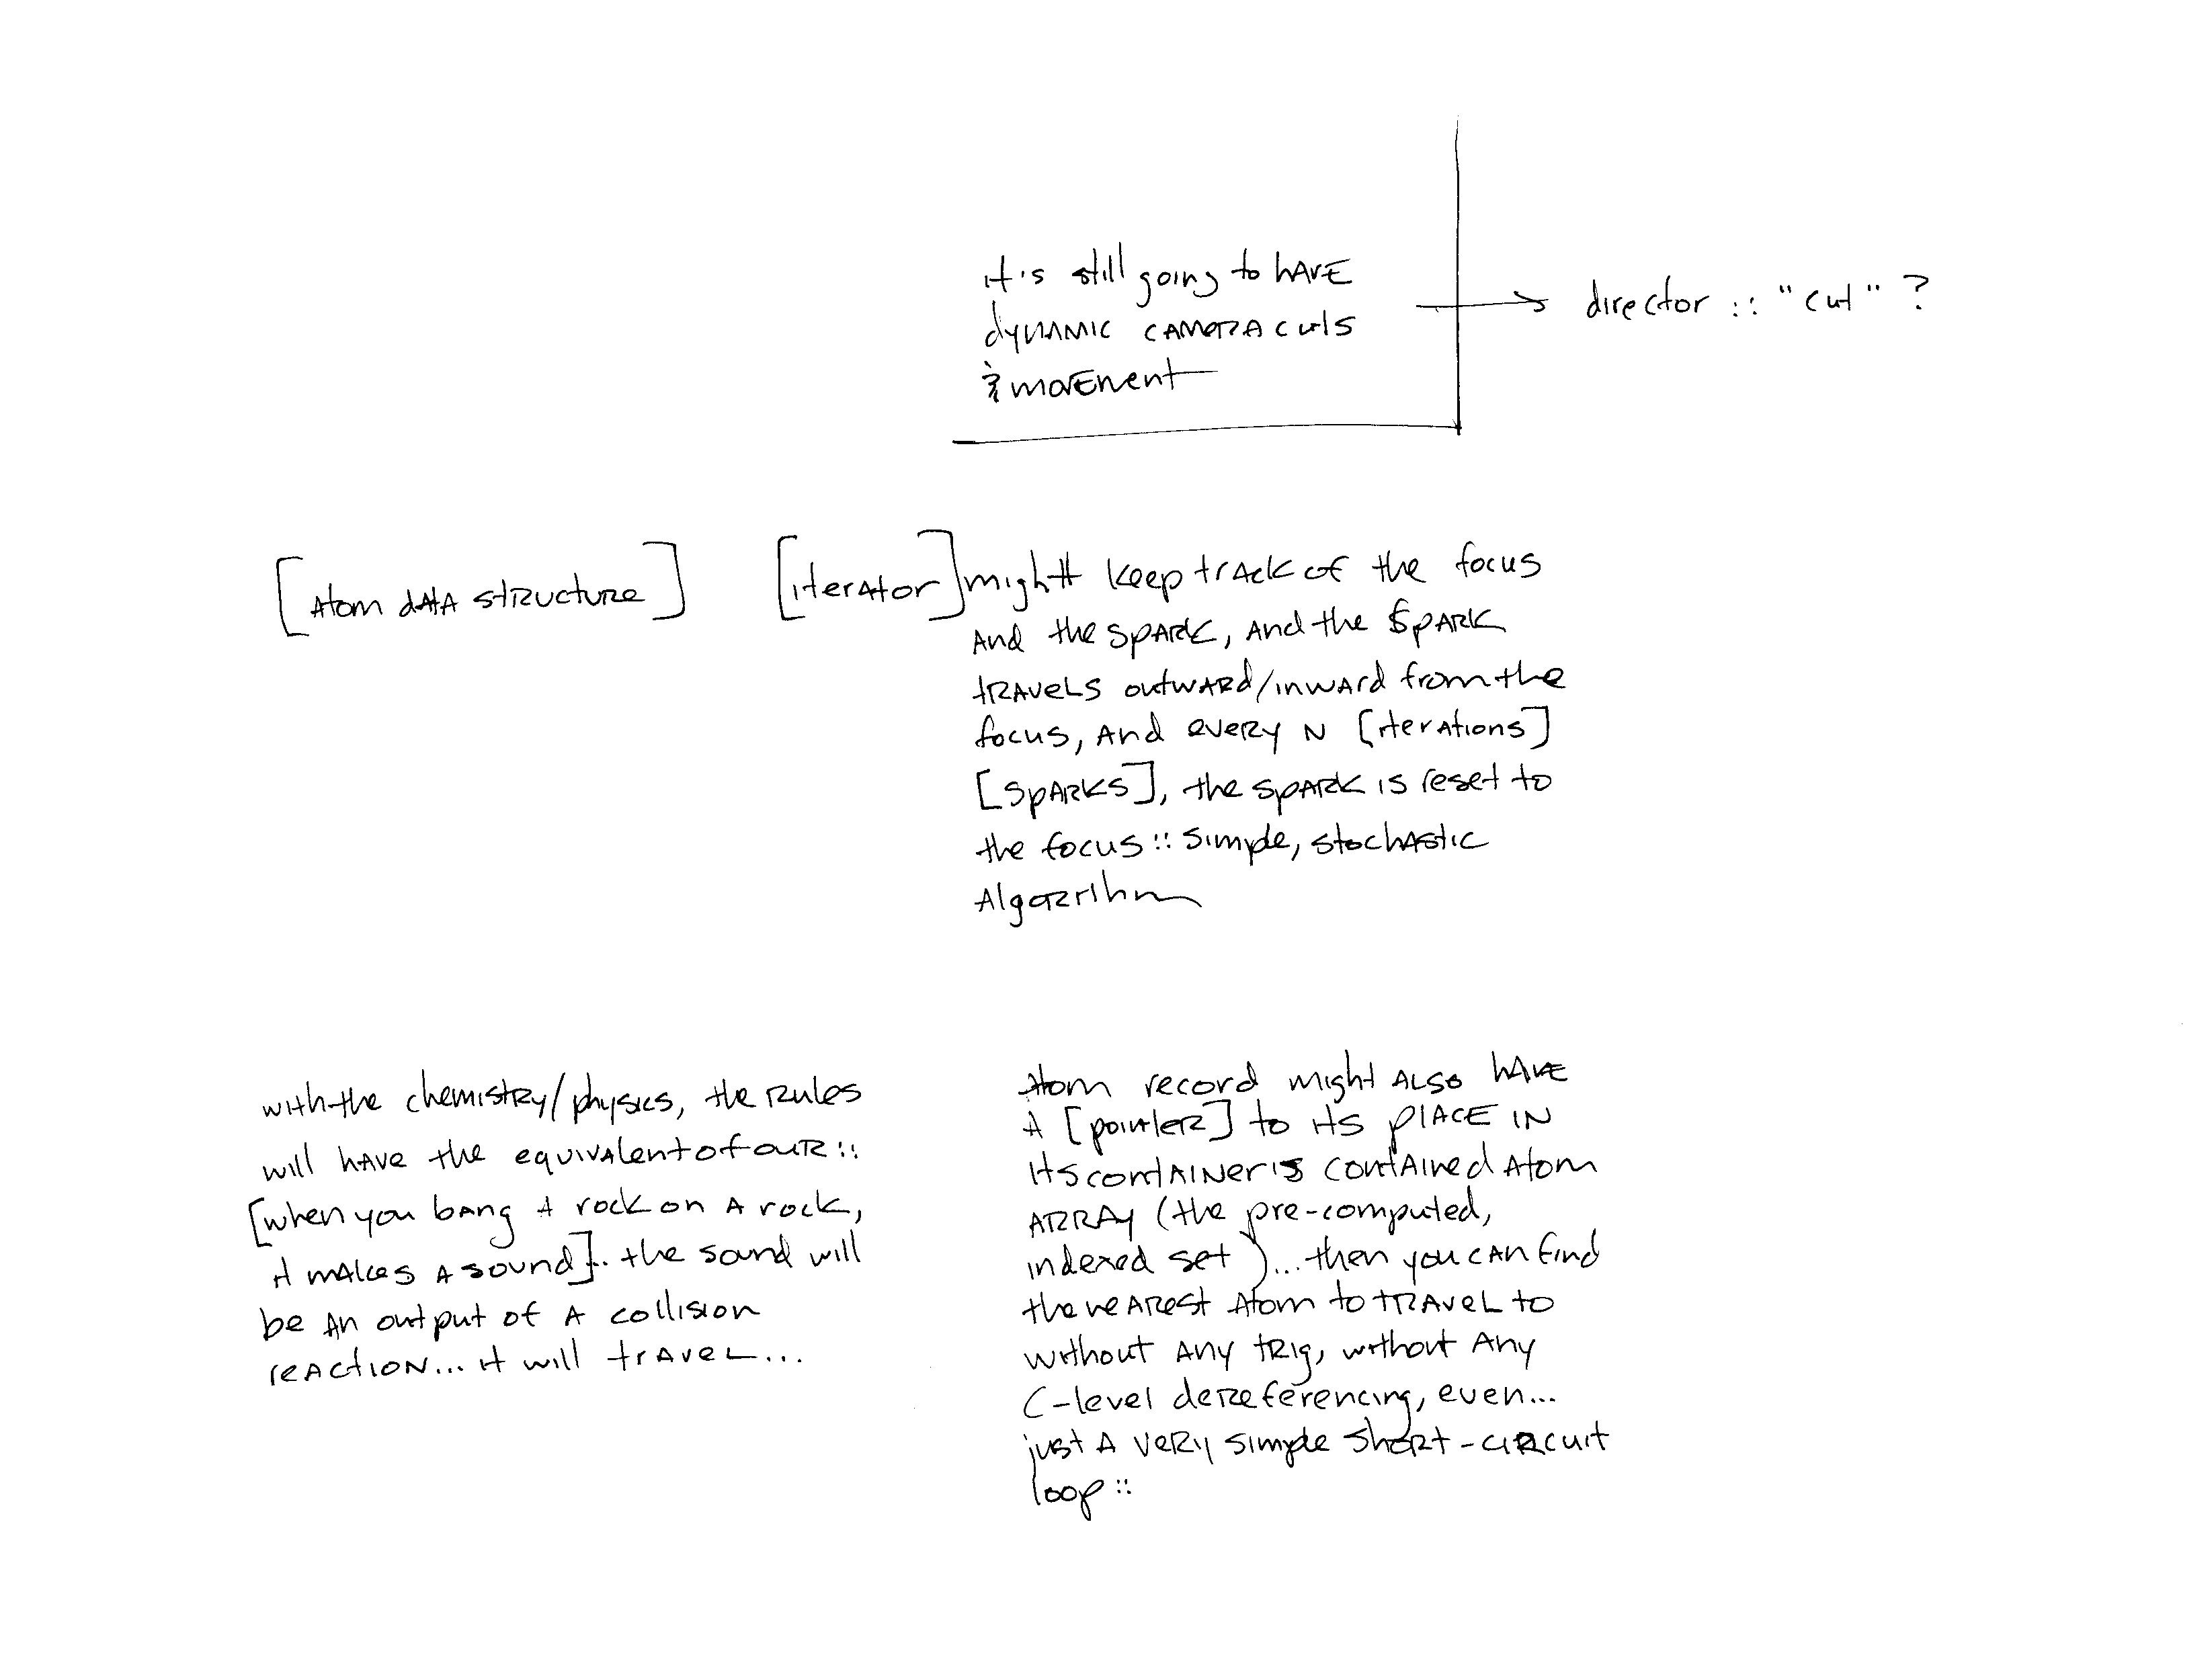 it's still going to have
dynamic camera cuts
& movement
director :: "cut" ?
[Atom data structure]
[iterator] might keep track of the focus
and the spark, and the spark
travels outward/inward from the
focus, and every N [iterations]
[sparks], the spark is reset to
the focus :: simple, stochastic
Algorithm
with the chemistry/physics, the rules
will have the equivalent of our ::
[when you bang a rock on a rock,
it makes a sound]... the sound will
be an output of a collision
reaction... it will travel...
Atom record might also have
a [pointer] to its place in
its container's contained atom
array (the pre-computed,
indexed set)... then you can find
the nearest atom to travel to
without any trig, without any
C-level dereferencing, even...
just a very simple short-circuit
loop ::